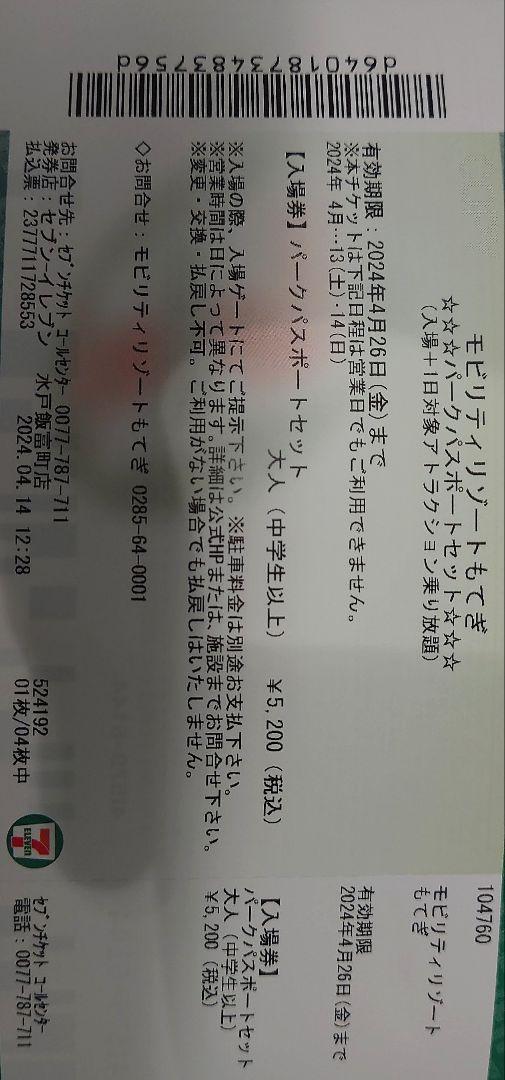 d64018734837756d
モビリティリゾートもてぎ
☆☆☆パークパスポートセット☆☆☆
(入場+1日対象アトラクション乗り放題)
有効期限：2024年4月26日(金)まで
※本チケットは下記日程は営業日でもご利用できません。
2024年 4月…13(土)・14(日)
【入場券】パークパスポートセット
大人（中学生以上） ¥5,200（税込）
※入場の際、入場ゲートにてご提示下さい。※駐車料金は別途お支払下さい。
※営業時間は日によって異なります。詳細は公式HPまたは、施設までお問合せ下さい。
※変更・交換・払戻し不可。ご利用がない場合でも払戻しはいたしません。
◇お問合せ：モビリティリゾートもてぎ 0285-64-0001
お問合せ先：ｾﾌﾞﾝﾁｹｯﾄ ｺｰﾙｾﾝﾀｰ 0077-787-711
発券店：セブン-イレブン 水戸飯富町店
払込票：2377711728553 2024.04.14 12:28
524192
01枚/04枚中
7
ELEVEN
104760
モビリティリゾート
もてぎ
有効期限
2024年4月26日(金)まで
【入場券】
パークパスポートセット
大人（中学生以上）
¥5,200（税込）
ｾﾌﾞﾝﾁｹｯﾄ ｺｰﾙｾﾝﾀｰ
電話：0077-787-711